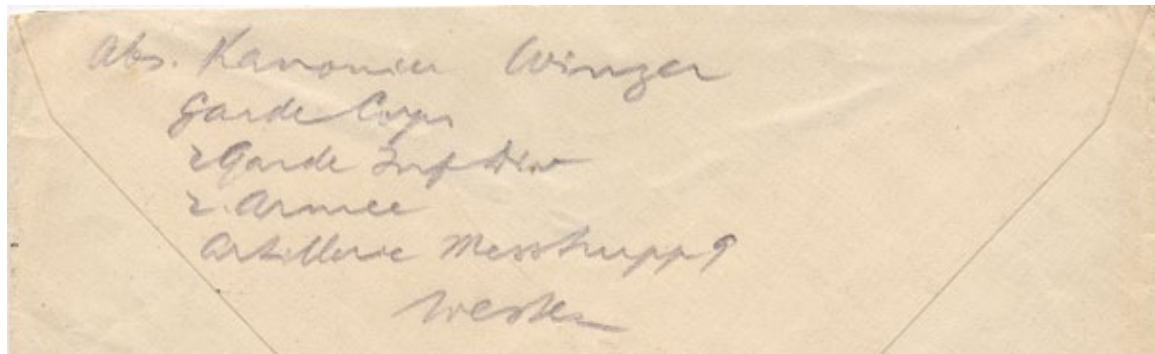 Abs. Kanonier Winzer
Garde Corps
2 Garde Inf Div
2. Armee
Artillerie Messtrupp 9
Westen